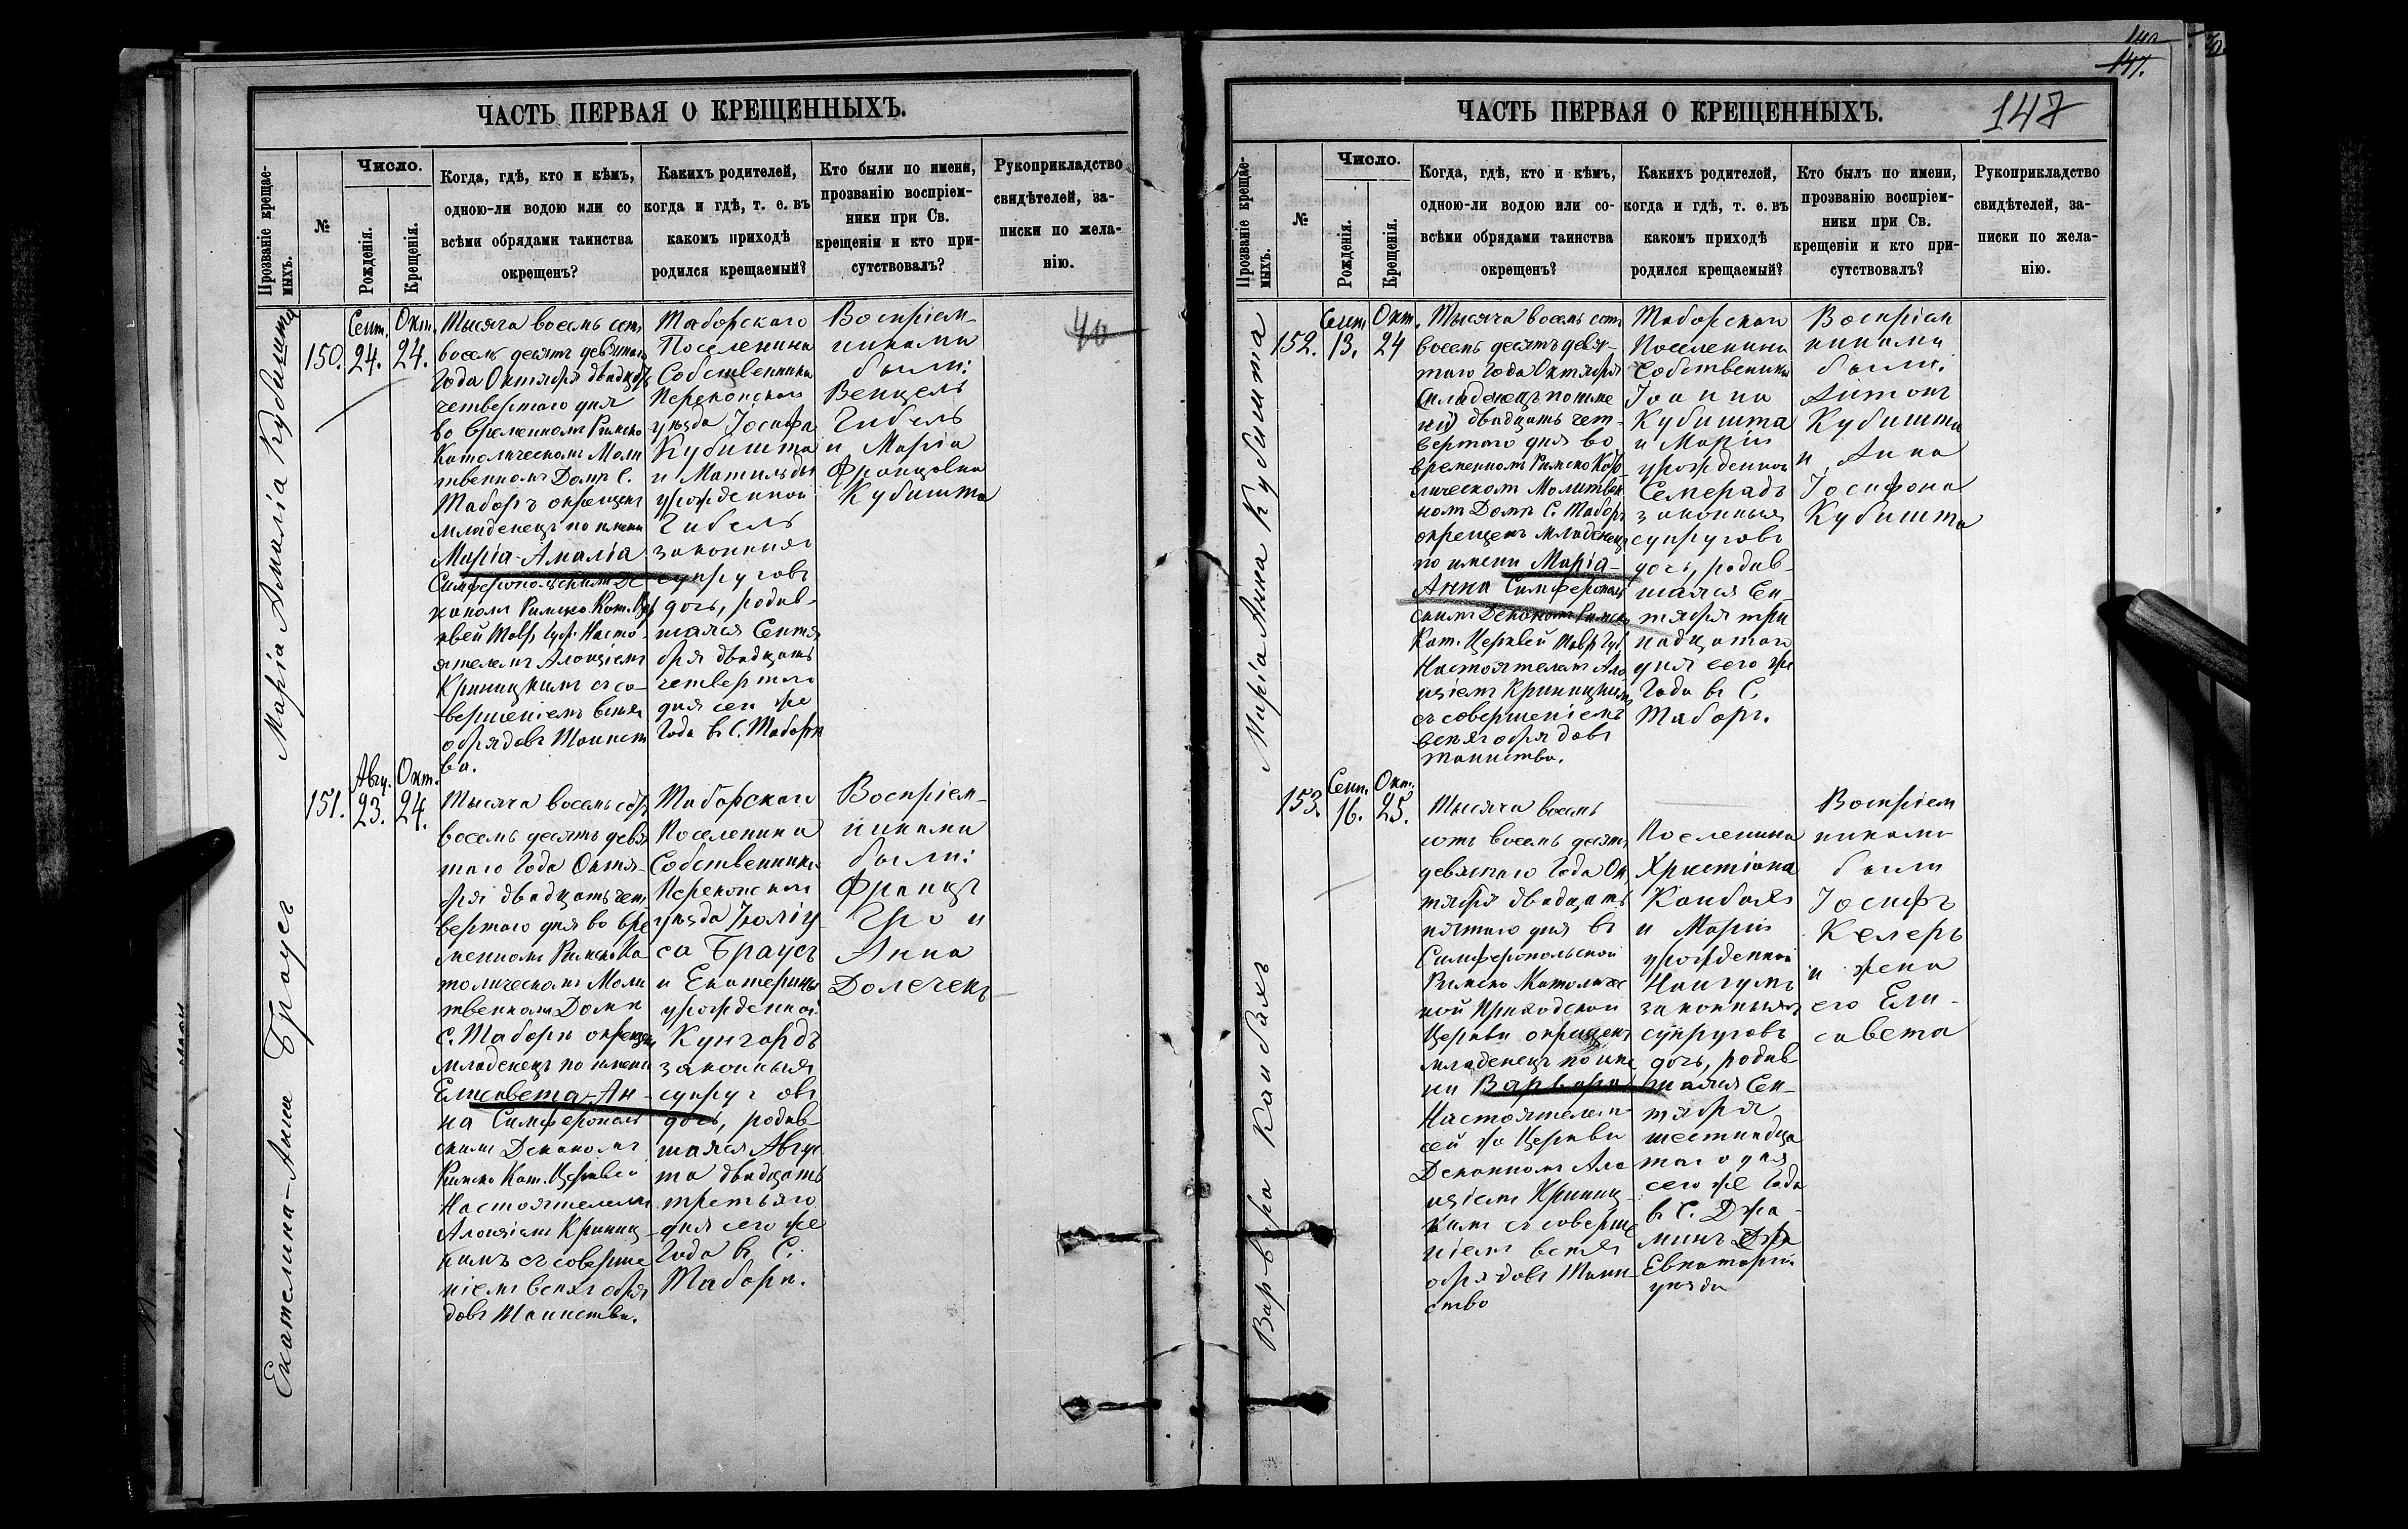 ЧАСТЬ ПЕРВАЯ О КРЕЩЕННЫХЪ.
Прозваніе крещае-
мыхъ.
№
Число.
Рожденія.
Крещенія.
Когда, гдѣ, кто и кѣмъ,
одною-ли водою или со
всѣми обрядами таинства
окрещенъ?
Какихъ родителей,
когда и гдѣ, т. е. въ
какомъ приходѣ
родился крещаемый?
Кто были по имени,
прозванію воспріем-
ники при Св.
крещеніи и кто при-
сутствовалъ?
Рукоприкладство
свидѣтелей, за-
писки по жела-
нію.
Марія Амалія Кубишта
150.
Сент.
24.
Окт.
24.
Тысяча восемь сотъ
восемь десятъ девятаго
Года Октября двадцать
четвертаго дня
во временномъ Римско
Католическомъ Моли
твенномъ Домѣ С.
Таборъ окрещенъ
младенецъ по имени
Марія-Амалія
Симферопольскимъ Де
каномъ Римско-Кат. Цер
квей Тавр. Губ. Насто-
ятелемъ Алоизіемъ
Криницкимъ съ со-
вершеніемъ всѣхъ
обрядовъ Таинст
ва.
Таборскаго
Поселенина
Собственника
Перекопскаго
уѣзда Іосифа
Кубишта
и Матильды
урожденной
Гибель
законныхъ
супруговъ
дочь, родив-
шаяся Сентя
бря двадцать
четвертаго
дня сего же
Года въ С. Таборѣ
Воспріем-
никами
были:
Венцель
Гибель
и Марія
Францовна
Кубишта
40
Екателина-Анна Браусъ
151.
Авгу.
23.
Окт.
24.
Тысяча восемь сотъ
восемь десятъ девя
таго Года Октя-
бря двадцать чет
вертаго дня во вре
менномъ Римско Ка
толическомъ Моли
твенномъ Домѣ
С. Таборѣ окрещенъ
младенецъ по имени
Елисавета-Ан-
на Симферополь
скимъ Деканомъ
Римско Кат. Церквей
Настоятелемъ
Алоизіемъ Криниц-
кимъ съ соверше
ніемъ всѣхъ обря
довъ Таинства.
Таборскаго
Поселенина
Собственника
Перекопскаго
уѣзда Юліу-
са Браусъ
и Екатерины
урожденной
Кунгардъ
законныхъ
супруговъ
дочь, родив-
шаяся Авгус
та двадцать
третьяго
дня сего же
Года въ С.
Таборѣ.
Воспріем-
никами
были:
Францъ
Гро и
Анна
Долечекъ
140
147.
ЧАСТЬ ПЕРВАЯ О КРЕЩЕННЫХЪ.
147
Прозваніе крещае-
мыхъ.
№
Число.
Рожденія.
Крещенія.
Когда, гдѣ, кто и кѣмъ,
одною-ли водою или со-
всѣми обрядами таинства
окрещенъ?
Какихъ родителей,
когда и гдѣ, т. е. въ
какомъ приходѣ
родился крещаемый?
Кто былъ по имени,
прозванію воспріем-
ники при Св.
крещеніи и кто при-
сутствовалъ?
Рукоприкладство
свидѣтелей, за-
писки по жела-
нію.
Марія Анна Кубишта
152.
Сент
13.
Окт.
24
Тысяча восемь сотъ
восемь десятъ девя-
таго Года Октября
(младенецъ по име
ни) двадцать чет-
вертаго дня во
временномъ Римско Като
лическомъ Молитвен
номъ Домѣ С. Таборѣ
окрещенъ младенецъ
по имени Марія-
Анна Симферополь
скимъ Деканомъ Римско
Кат. Церквей Тавр. Губ.
Настоятелемъ Ало
изіемъ Криницкимъ
съ совершеніемъ
всѣхъ обрядовъ
таинства.
Таборскаго
Поселенина
Собственника
Іоанна
Кубишта
и Маріи
урожденной
Семерадъ
законныхъ
супруговъ
дочь, родив-
шаяся Сен-
тября три
надцатаго
дня сего же
Года въ С.
Таборъ.
Воспріем
никами
были:
Антонъ
Кубишта
и Анна
Іосифона
Кубишта
Варвара Канбахъ
153.
Сент.
16.
Окт.
25.
Тысяча восемь
сотъ восемь десятъ
девятаго Года Ок
тября двадцать
пятаго дня въ
Симферопольской
Римско Католичес
кой Приходской
Церкви окрещенъ
младенецъ по име
ни Варвара
Настоятелемъ
сей же Церкви
Деканомъ Ало
изіемъ Криниц-
кимъ съ соверше
ніемъ всѣхъ
обрядовъ Таин-
ство
Поселенина
Христіана
Канбахъ
и Маріи
урожденной
законныхъ
супруговъ
дочь, родив
шаяся Сен-
тября
шестнадца
таго дня
сего же Года
въ С. Джа-
минъ
Евпаторій
уѣзда
Воспріем
никами
были
Іосифъ
Келеръ
и жена
его Ели-
савета